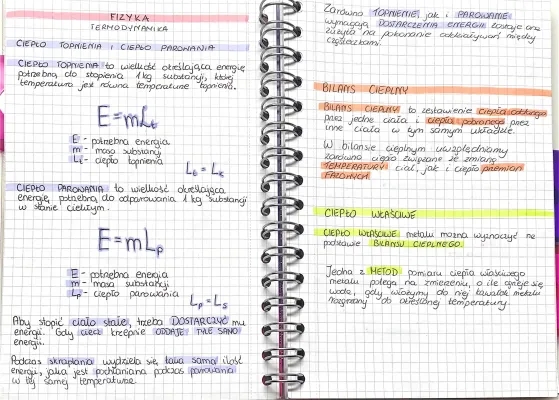 FIZYKA
TERMODYNAMIKA
CIEPŁO TOPNIENIA I CIEPŁO PAROWANIA
CIEPŁO TOPNIENIA to wielkość określająca energię
potrzebną do stopienia 1kg substancji, której
temperatura jest równa temperaturze topnienia.
E=mLt
E - potrzebna energia
m - masa substancji
Lt - ciepło topnienia
Lt = Lk
CIEPŁO PAROWANIA to wielkość określająca
energię potrzebną do odparowania 1 kg substancji
w stanie ciekłym.
E=mLp
E - potrzebna energia
m - masa substancji
Lp - ciepło parowania
Lp = Ls
Aby stopić ciało stałe, trzeba DOSTARCZYĆ mu
energii. Gdy ciecz krzepnie ODDAJE TYLE SAMO
energii.
Podczas skraplania wydziela się taka sama ilość
energii, jaka jest pochłaniana podczas parowania
w tej samej temperaturze.
Zarówno TOPNIENIE, jak i PAROWANIE
wymagają DOSTARCZENIA ENERGII zostaje ona
zużyta na pokonanie oddziaływań między
cząsteczkami.
BILANS CIEPLNY
BILANS CIEPLNY to zestawienie ciepła oddanego
przez jedne ciała i ciepła pobranego przez
inne ciała w tym samym układzie.
W bilansie cieplnym uwzględniamy
zarówno ciepło związane ze zmianą
TEMPERATURY ciał, jak i ciepło przemian
FAZOWYCH
CIEPŁO WŁAŚCIWE
CIEPŁO WŁAŚCIWE metalu można wyznaczyć na
podstawie BILANSU CIEPLNEGO.
Jedna z METOD pomiaru ciepła właściwego
metalu polega na zmierzeniu, o ile ogrzeje się
woda, gdy włożymy do niej kawałek metalu
rozgrzany do określonej temperatury.